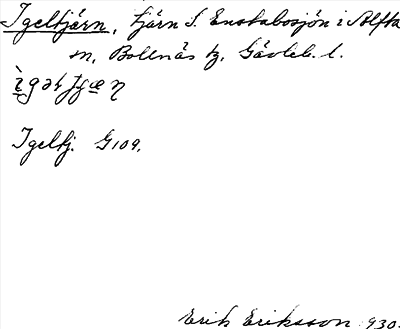 Igeltjärn, tjärn S. Enstabosjön i Alfta
sn, Bollnäs tg, Gävleb. l.
Igeltj. G109.
Erik Eriksson 1930.